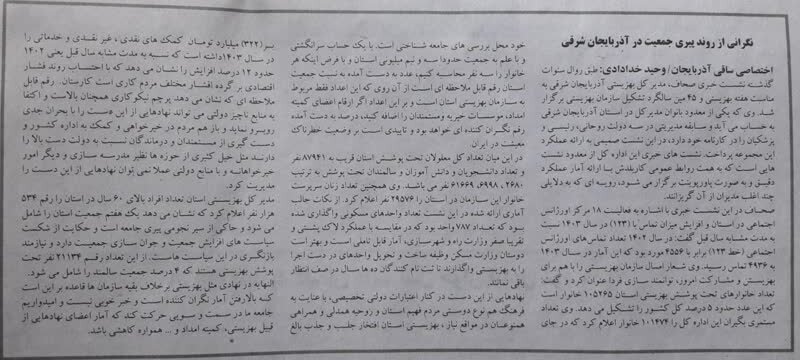 نگرانی از روند پیری جمعیت در آذربایجان شرقی
اختصاصی ساقی آذربایجان/ وحید خدادادی: طبق روال سنوات
گذشته نشست خبری صحاف، مدیر کل بهزیستی آذربایجان شرقی به
مناسبت هفته بهزیستی و ۴۵ مین سالگرد تشکیل سازمان بهزیستی برگزار
شد. وی که یکی از معدود بانوان مدیرکل در استان آذربایجان شرقی
به حساب می آید و سابقه مدیریتی در سه دولت روحانی، رئیسی و
پزشکیان را در کارنامه خود دارد، در این نشست صمیمی به ارائه عملکرد
این مجموعه پرداخت. نشست های خبری این اداره کل از معدود نشست
هایی است که به همت روابط عمومی کاربلدش با ارائه آمار عملکرد
دقیق و به صورت پاورپوینت برگزار می شود، رویه ای که به دلایلی
چند اغلب مدیران از آن گریزانند.
صحاف در این نشست خبری با اشاره به فعالیت ۱۸ مرکز اورژانس
اجتماعی در استان و افزایش میزان تماس با (۱۲۳) در سال ۱۴۰۳ نسبت
به مدت مشابه سال قبل گفت: در سال ۱۴۰۲ تعداد تماس های اورژانس
اجتماعی (خط ۱۲۳) برابر با ۴۵۵۶ مورد بود که این آمار در سال ۱۴۰۳
به ۴۹۳۶ تماس رسید. وی شعار امسال سازمان بهزیستی را با هم برای
بهزیستن و مشارکت امروز، توانمند سازی فردا عنوان کرد و گفت:
تعداد خانوارهای تحت پوشش بهزیستی استان ۱۰۵۲۶۵ خانوار است
که این عدد حدود ۵ درصد کل کشور را تشکیل می دهد. وی تعداد
مستمری بگیران این اداره کل را ۱۰۱۴۷۴ خانوار اعلام کرد که در جای
خود محل بررسی های جامعه شناختی است. با یک حساب سرانگشتی
و با علم به جمعیت حدودا سه و نیم میلیونی استان و با فرض اینکه هر
خانوار را سه نفر محاسبه کنیم، عدد به دست آمده به نسبت جمعیت
استان رقم قابل ملاحظه ای است از آن روی که این اعداد فقط مربوط
به سازمان بهزیستی استان است و بر این اعداد اگر ارقام اعضای کمیته
امداد، موسسات خیریه و مستمندان را اضافه کنید، درصد به دست آمده
رقم نگران کننده ای خواهد بود و تاییدی است بر وضعیت خطرناک
معیشت در ایران.
در این میان تعداد کل معلولان تحت پوشش استان قریب به ۸۷۹۴۱ نفر
و تعداد دانشجویان و دانش آموزان و سالمندان تحت پوشش به ترتیب
۲۶۸۰، ۶۹۹۸ و ۶۱۶۶۹ نفر می باشند. وی همچنین تعداد زنان سرپرست
خانوار این سازمان در استان را ۲۹۵۷۶ نفر اعلام کرد. از نکات جالب
آماری ارائه شده در این نشست تعداد واحدهای مسکونی واگذاری شده
بود که تعداد ۷۸۷ واحد بود که در مقایسه با عملکرد لاک پشتی و
تقریبا صفر وزارت راه و شهرسازی، آمار قابل تاملی است و بهتر است
دوستان وزارت مسکن وظیفه ساخت و تحویل واحدهای در دست اجرا
را به بهزیستی واگذارند تا ثبت نام کنندگان ده ها سال در صف انتظار
باقی نمانند.
نهادهایی از این دست در کنار اعتبارات دولتی تخصیصی، با عنایت به
فرهنگ هم نوع دوستی مردم فهیم استان و روحیه همدلی و همراهی
همنوعان در مواقع نیاز ، بهزیستی استان افتخار جلب و جذب بالغ
بر (۳۲۲) میلیارد تومان کمک های نقدی ، غیر نقدی و خدماتی را
در سال ۱۴۰۳داشته است که نسبت به مدت مشابه سال قبل یعنی ۱۴۰۲
حدود ۱۲ درصد افزایش را نشان می دهد که با احتساب روند فشار
اقتصادی بر گرده اقشار مختلف مردم کاری است کارستان. رقم قابل
ملاحظه ای که نشان می دهد پرچم نیکوکاری همچنان بالاست و اکتفا
به منابع ناچیز دولتی می تواند نهادهایی از این دست را با بحران جدی
روبرو نماید و باز هم مردم در خیرخواهی و کمک به اداره کشور و
دست گیری از مستمندان و درماندگان نسبت به دولت دست بالا را
دارند مثل خیل کثیری از حوزه ها نظیر مدرسه سازی و دیگر امور
خیرخواهانه و با منابع دولتی عملا نمی توان نهادهایی از این دست را
مدیریت کرد.
مدیر کل بهزیستی استان تعداد افراد بالای ۶۰ سال در استان را رقم ۵۳۴
هزار نفر اعلام کرد که نشان می دهد یک هفتم جمعیت استان را شامل
می شود و حاکی از سیر نجومی پیری جامعه است و حکایت از شکست
سیاست های افزایش جمعیت و جوان سازی جمعیت دارد و نیازمند
بازنگری در این سیاست هاست. از این تعداد رقم ۲۱۱۳۴ نفر تحت
پوشش بهزیستی هستند که ۴ درصد جمعیت سالمند را شامل می شود.
النهایه در نهادی مثل بهزیستی برخلاف بقیه سازمان ها قاعده بر این است
که بالا رفتن آمار نگران کننده است و خبر خوبی نیست و امیدواریم
جامعه ما در سمت و سویی حرکت کند که آمار اعضای نهادهایی از
قبیل بهزیستی، کمیته امداد و ... همواره کاهشی باشد.